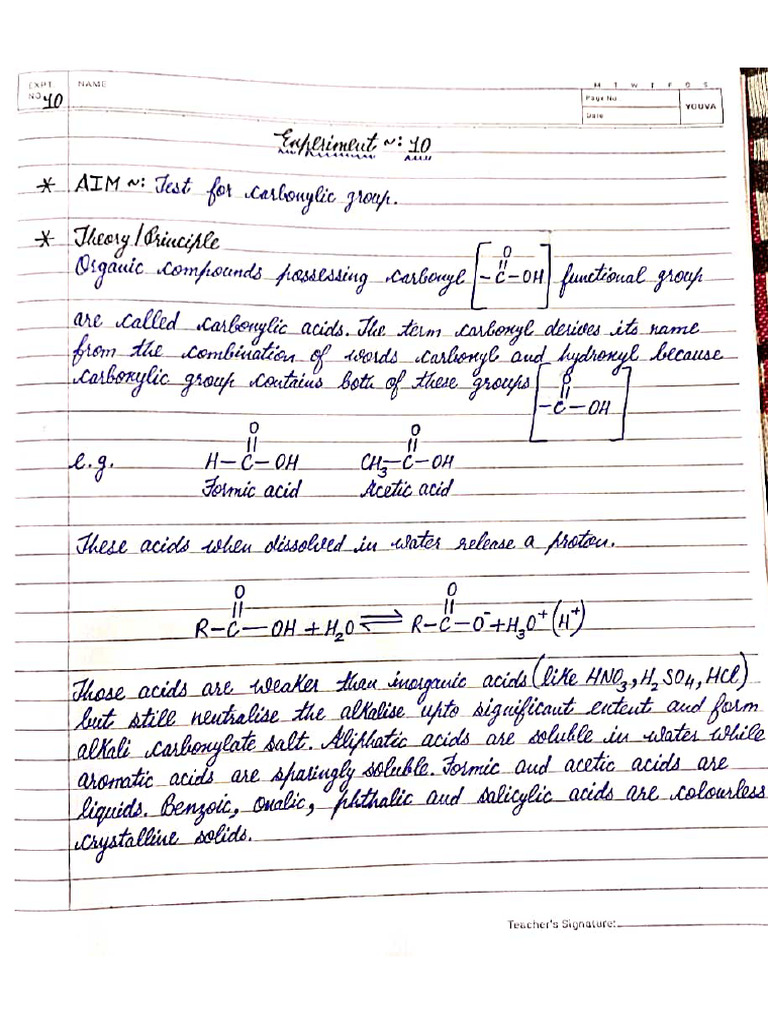 EXPT. NO. 10 NAME M T W T F S S
Page No. YOUVA
Date
Experiment ~: 10
* AIM ~: Test for carboxylic group.
* Theory/Principle
O
Organic compounds possessing carboxyl [-C-OH] functional group
are called carboxylic acids. The term carboxyl derives its name
from the combination of words carbonyl and hydroxyl because
carboxylic group contains both of these groups
O
[-C-OH]
O O
e.g. H-C-OH CH3-C-OH
Formic acid Acetic acid
These acids when dissolved in water release a proton.
O O
R-C-OH + H2O ⇌ R-C-O⁻ + H3O⁺ (H⁺)
Those acids are weaker than inorganic acids (like HNO3, H2SO4, HCl)
but still neutralise the alkalise upto significant extent and form
alkali carboxylate salt. Aliphatic acids are soluble in water while
aromatic acids are sparingly soluble. Formic and acetic acids are
liquids. Benzoic, oxalic, phthalic and salicylic acids are colourless
crystalline solids.
Teacher's Signature: